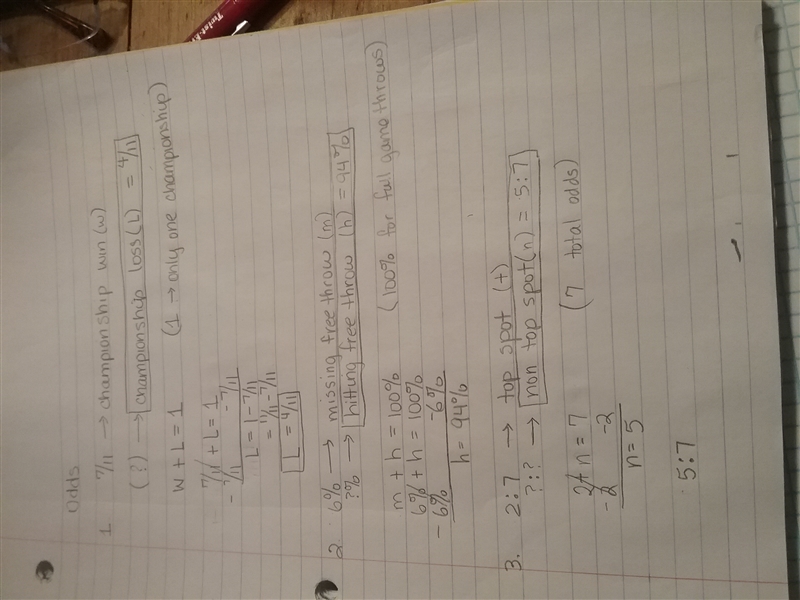 Odds
1 7/11 → championship win (w)
(?) → championship loss (L) = 4/11
w + L = 1 (1 → only one championship)
7/11 + L = 1
- 7/11 - 7/11
L = 1 - 7/11
= 11/11 - 7/11
L = 4/11
2 6% → missing free throw (m)
?% → hitting free throw (h) = 94%
m + h = 100% (100% for full game throws)
6% + h = 100%
- 6% -6%
h = 94%
3. 2:7 → top spot (t)
?:? → non top spot (n) = 5:7
2 + n = 7 (7 total odds)
-2 -2
n = 5
5:7